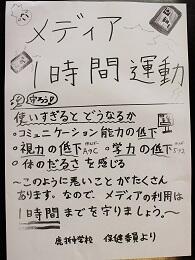 メディア
1時間運動
守ろう!
使いすぎるとどうなるか
○コミュニケーション能力の低下
○視力の低下 ○学力の低下
○体のだるさを感じる
〜このように悪いことがたくさん
あります。なので、メディアの利用は
1時間までを守りましょう。〜
学校 保健委員より